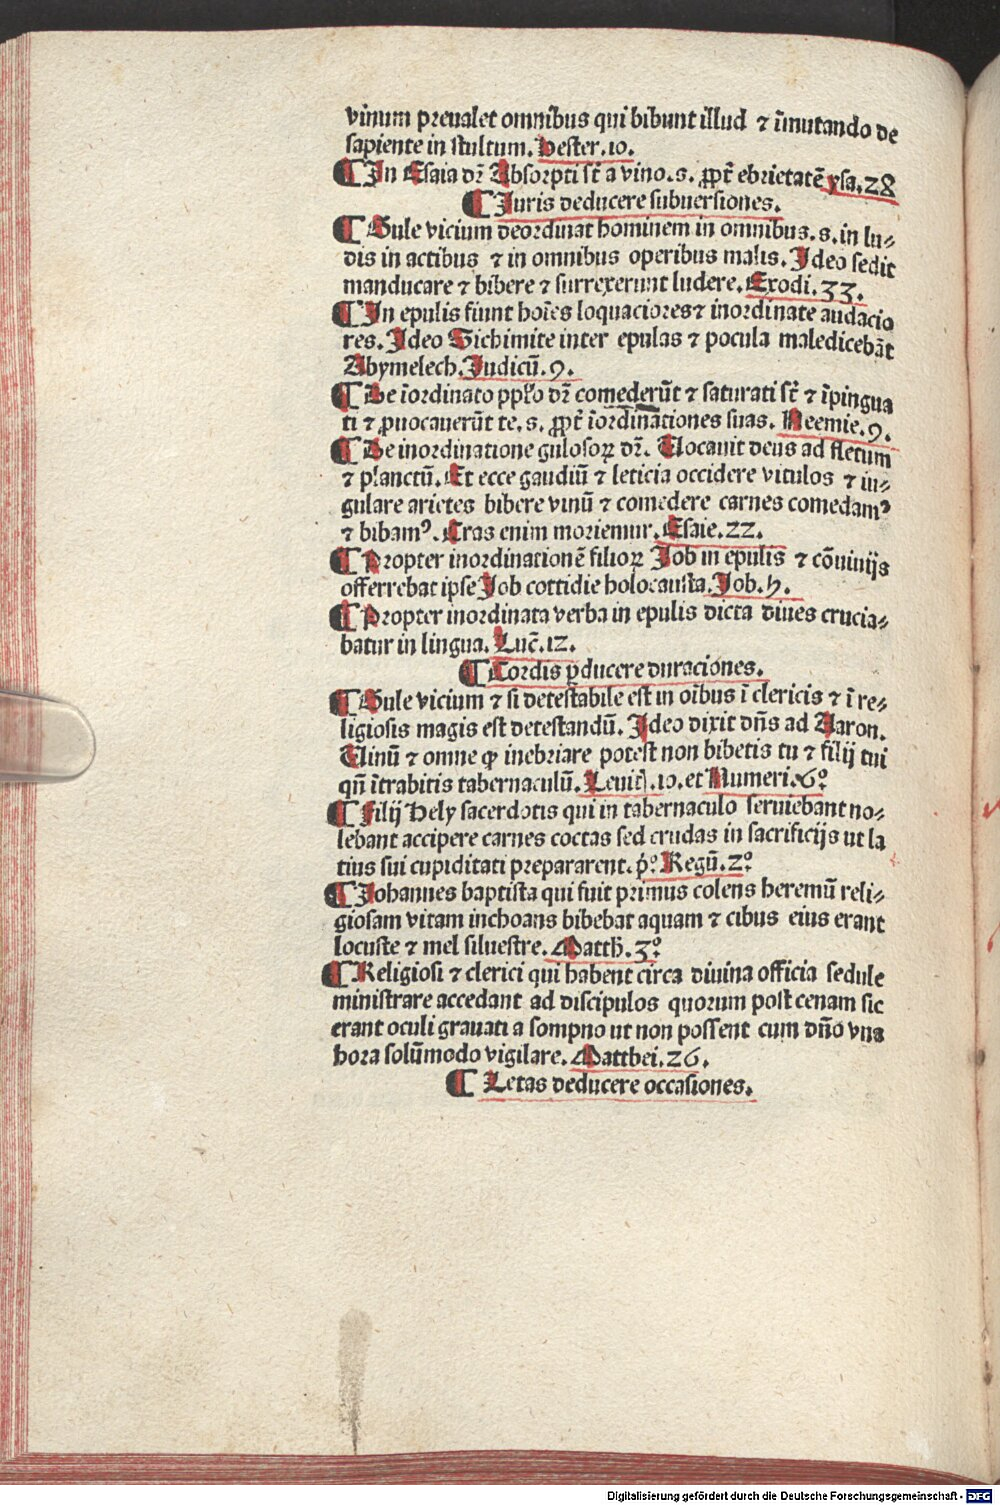 vinum preualet omnibus qui bibunt illud ⁊ īmutando de
sapiente in stultum. Hester. 10.
¶ In Esaia dr̄ Absorpti st̄ a vino. s. ꝓpt̄ ebrietatē ysa. 28
¶ Iuris deducere subuersiones.
¶ Gule vicium deordinat hominem in omnibus. s. in lu⸗
dis in actibus ⁊ in omnibus operibus malis. Ideo sedit
manducare ⁊ bibere ⁊ surrexerunt ludere. Exodi. 33.
¶ In epulis fiunt hoīes loquaciores ⁊ inordinate audacio
res. Ideo Sichimite inter epulas ⁊ pocula maledicebāt
Abymelech. Iudicū. 9.
¶ De īordinato pplo dr̄ comederūt ⁊ saturati st̄ ⁊ īpingua
ti ⁊ ꝓuocauerūt te. s. ꝓpt̄ īordinationes suas. Neemie. 9.
¶ De inordinatione gulosoꝝ dr̄. Uocauit deus ad fletum
⁊ planctū. Et ecce gaudiū ⁊ leticia occidere vitulos ⁊ iu⸗
gulare arietes bibere vinū ⁊ comedere carnes comedamꝰ
⁊ bibamꝰ. Cras enim moriemur. Esaie. 22.
¶ Propter inordinationē filioꝝ Job in epulis ⁊ cōuiuijs
offerrebat ipse Job cottidie holocausta. Job. h.
¶ Propter inordinata verba in epulis dicta diues crucia⸗
batur in lingua. Luc̄. 12.
¶ Cordis ꝑducere duraciones.
¶ Gule vicium ⁊ si detestabile est in oībus ī clericis ⁊ ī re⸗
ligiosis magis est detestandū. Ideo dixit dn̄s ad Aaron.
Uinū ⁊ omne ꝙ inebriare potest non bibetis tu ⁊ filij tui
qn̄ ītrabitis tabernaculū. Leuit̄. 10. et Numeri. 6°
¶ Filij Hely sacerdotis qui in tabernaculo seruiebant no⸗
lebant accipere carnes coctas sed crudas in sacrificijs ut la
tius sui cupiditati prepararent. p̄°. Regū. 2°
¶ Johannes baptista qui fuit primus colens heremū reli⸗
giosam vitam inchoans bibebat aquam ⁊ cibus eius erant
locuste ⁊ mel siluestre. Matth̄. 3°
¶ Religiosi ⁊ clerici qui habent circa diuina officia sedule
ministrare accedant ad discipulos quorum post cenam sic
erant oculi grauati a sompno ut non possent cum dn̄o vna
hora solūmodo vigilare. Matthei. 26.
¶ Letas deducere occasiones.
Digitalisierung gefördert durch die Deutsche Forschungsgemeinschaft - DFG